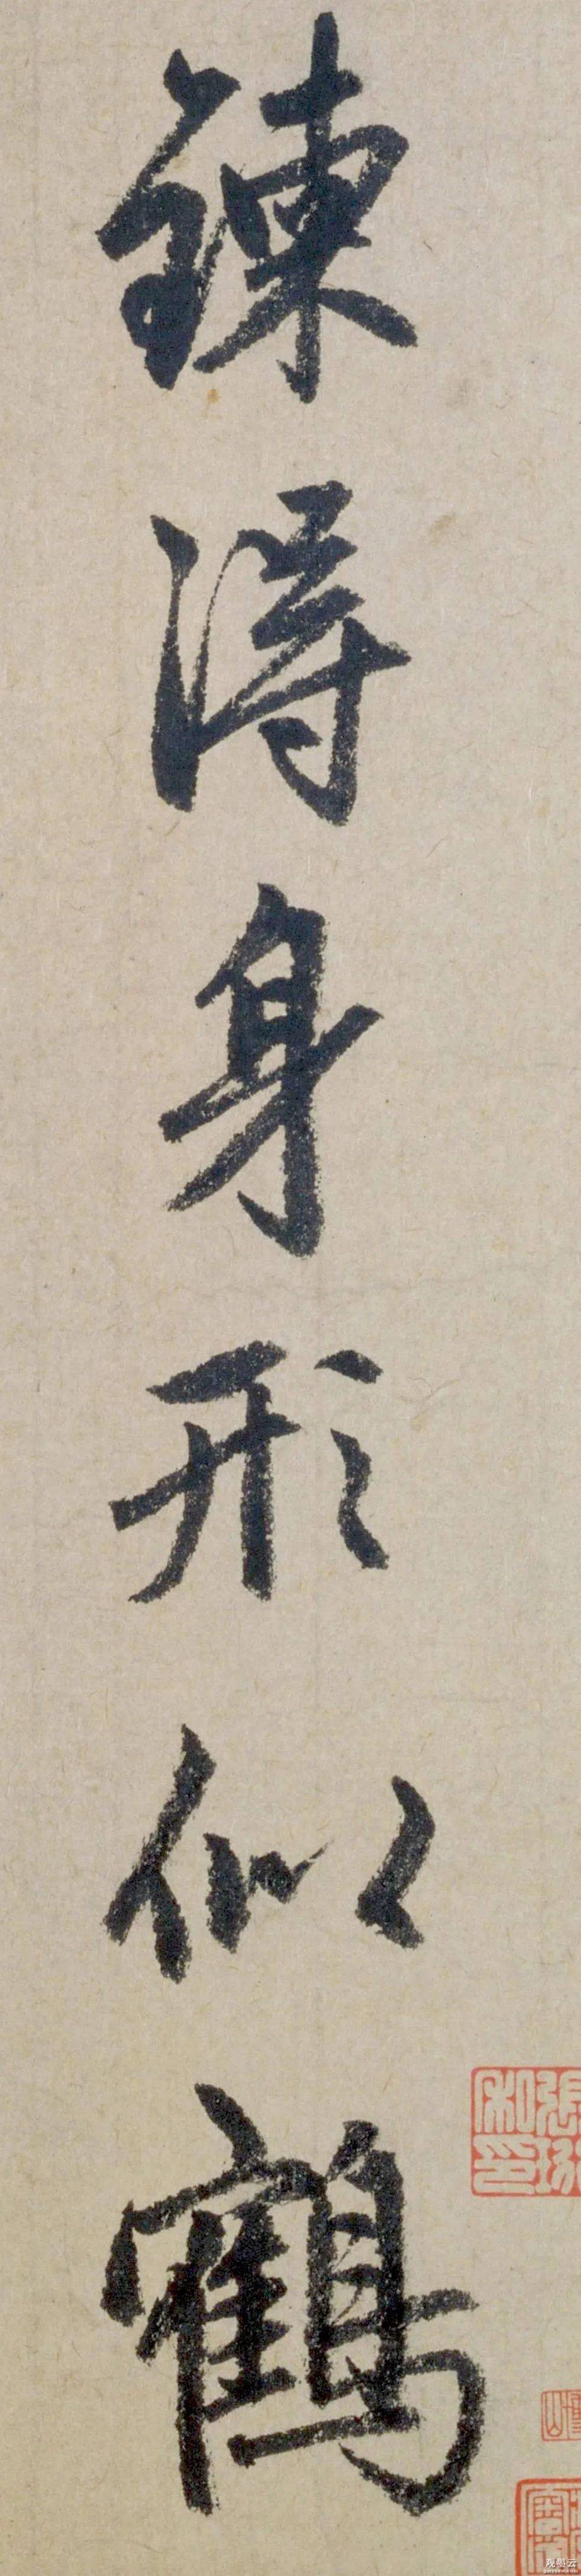 鍊得身形似鶴